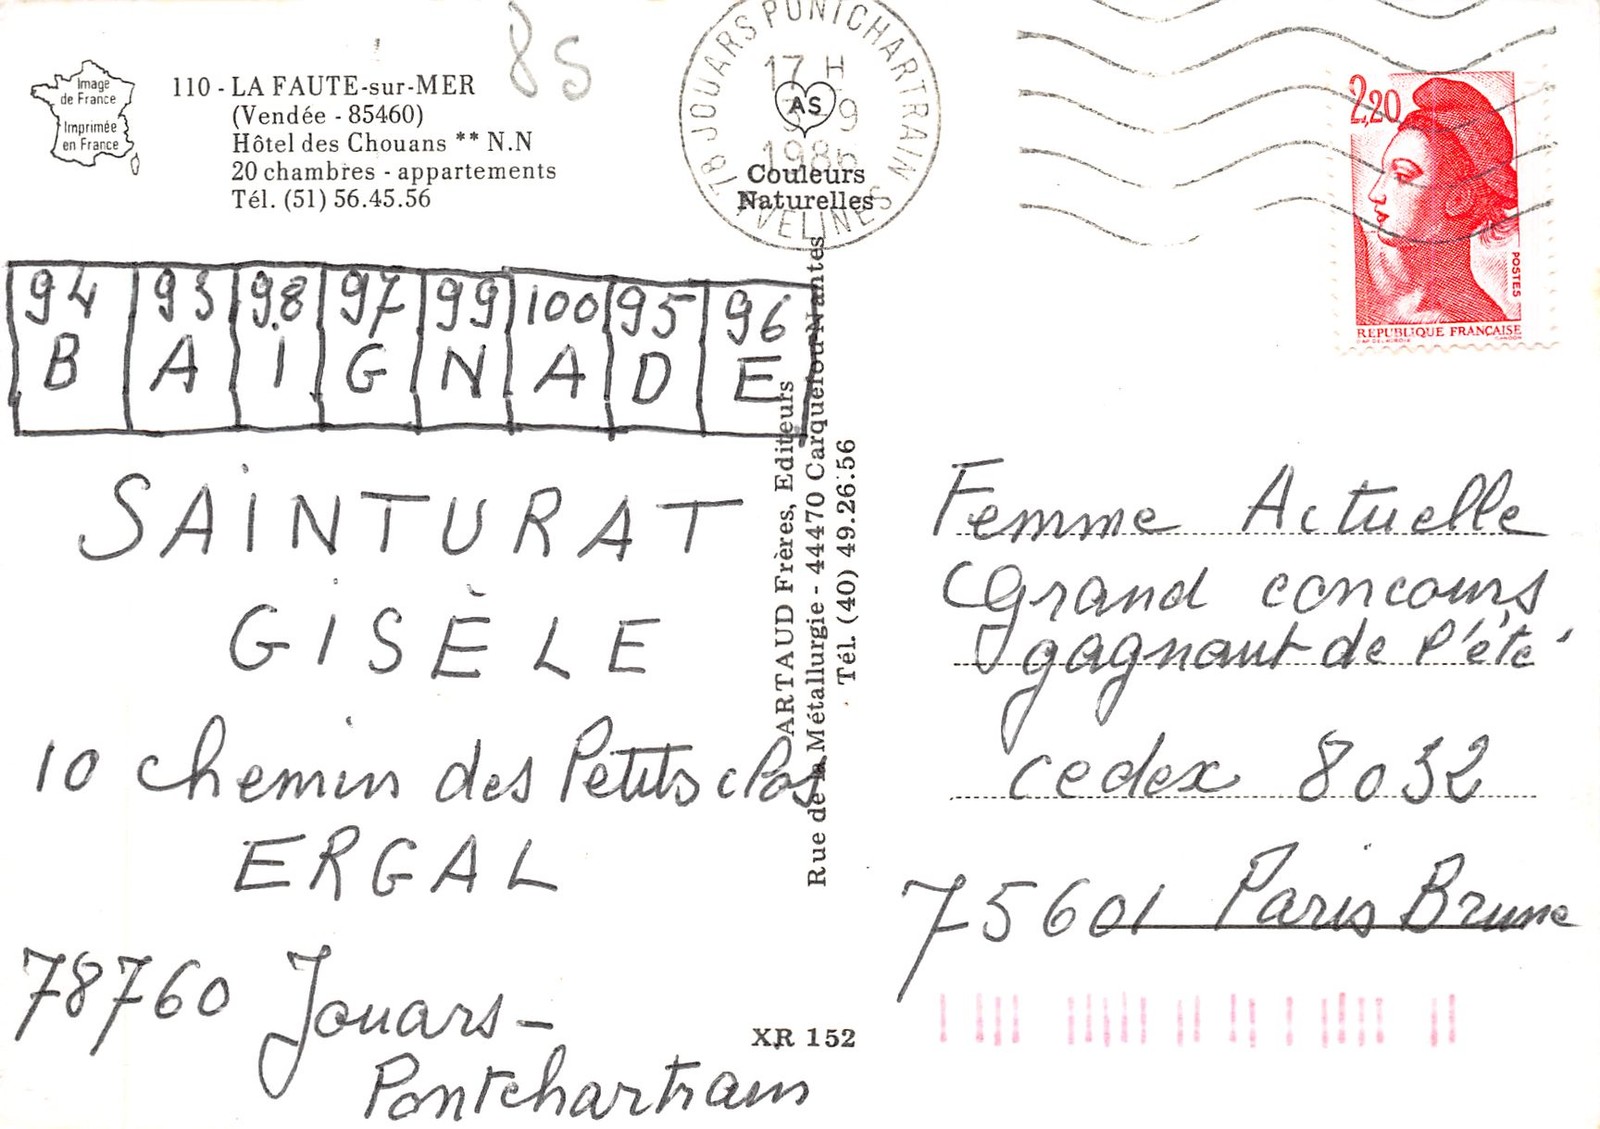 85
Image
de France
Imprimée
en France
110 - LA FAUTE-sur-MER
(Vendée - 85460)
Hôtel des Chouans ** N.N
20 chambres - appartements
Tél. (51) 56.45.56
78 JOUARS PONTCHARTRAIN
17 H
1986
YVELINES
AS
Couleurs
Naturelles
2,20
POSTES
REPUBLIQUE FRANÇAISE
94 93 98 97 99 100 95 96
B A I G N A D E
SAINTURAT
GISÈLE
10 chemin des Petits clos
ERGAL
78760 Jouars-
Pontchartrain
ARTAUD Frères, Editeurs
Rue de la Métallurgie - 44470 Carquefou-Nantes
Tél. (40) 49.26.56
XR 152
Femme Actuelle
Grand concours
gagnant de l'été
cedex 8032
75601 Paris Brune